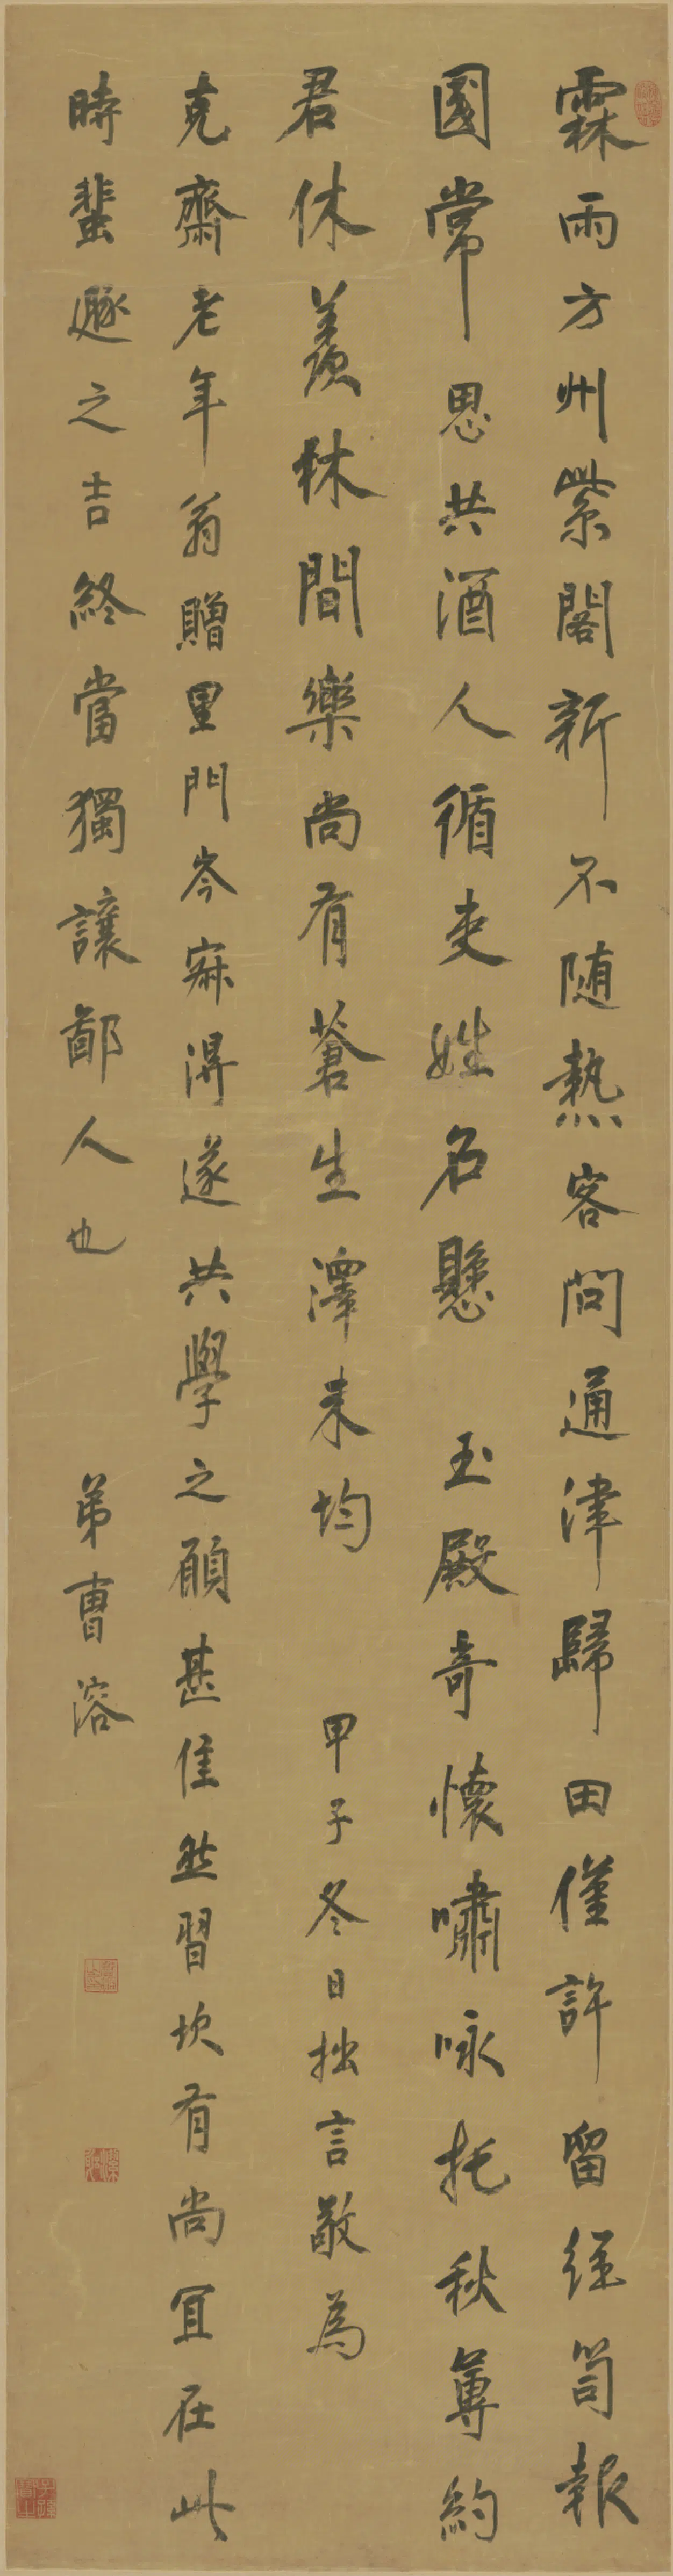 霖雨方州紫閣新不随熱客問通津歸田僅許留經笥報
國常思共酒人循吏姓名懸 玉殿奇懷嘯咏托秋蓴約
君休羨林間樂尚有蒼生澤未均 甲子冬日拙言敬為
克齋老年翁贈里門岑寂得遂共學之願甚佳然習坎有尚冝在此
時蜚遯之吉終當獨讓鄙人也 弟曹溶